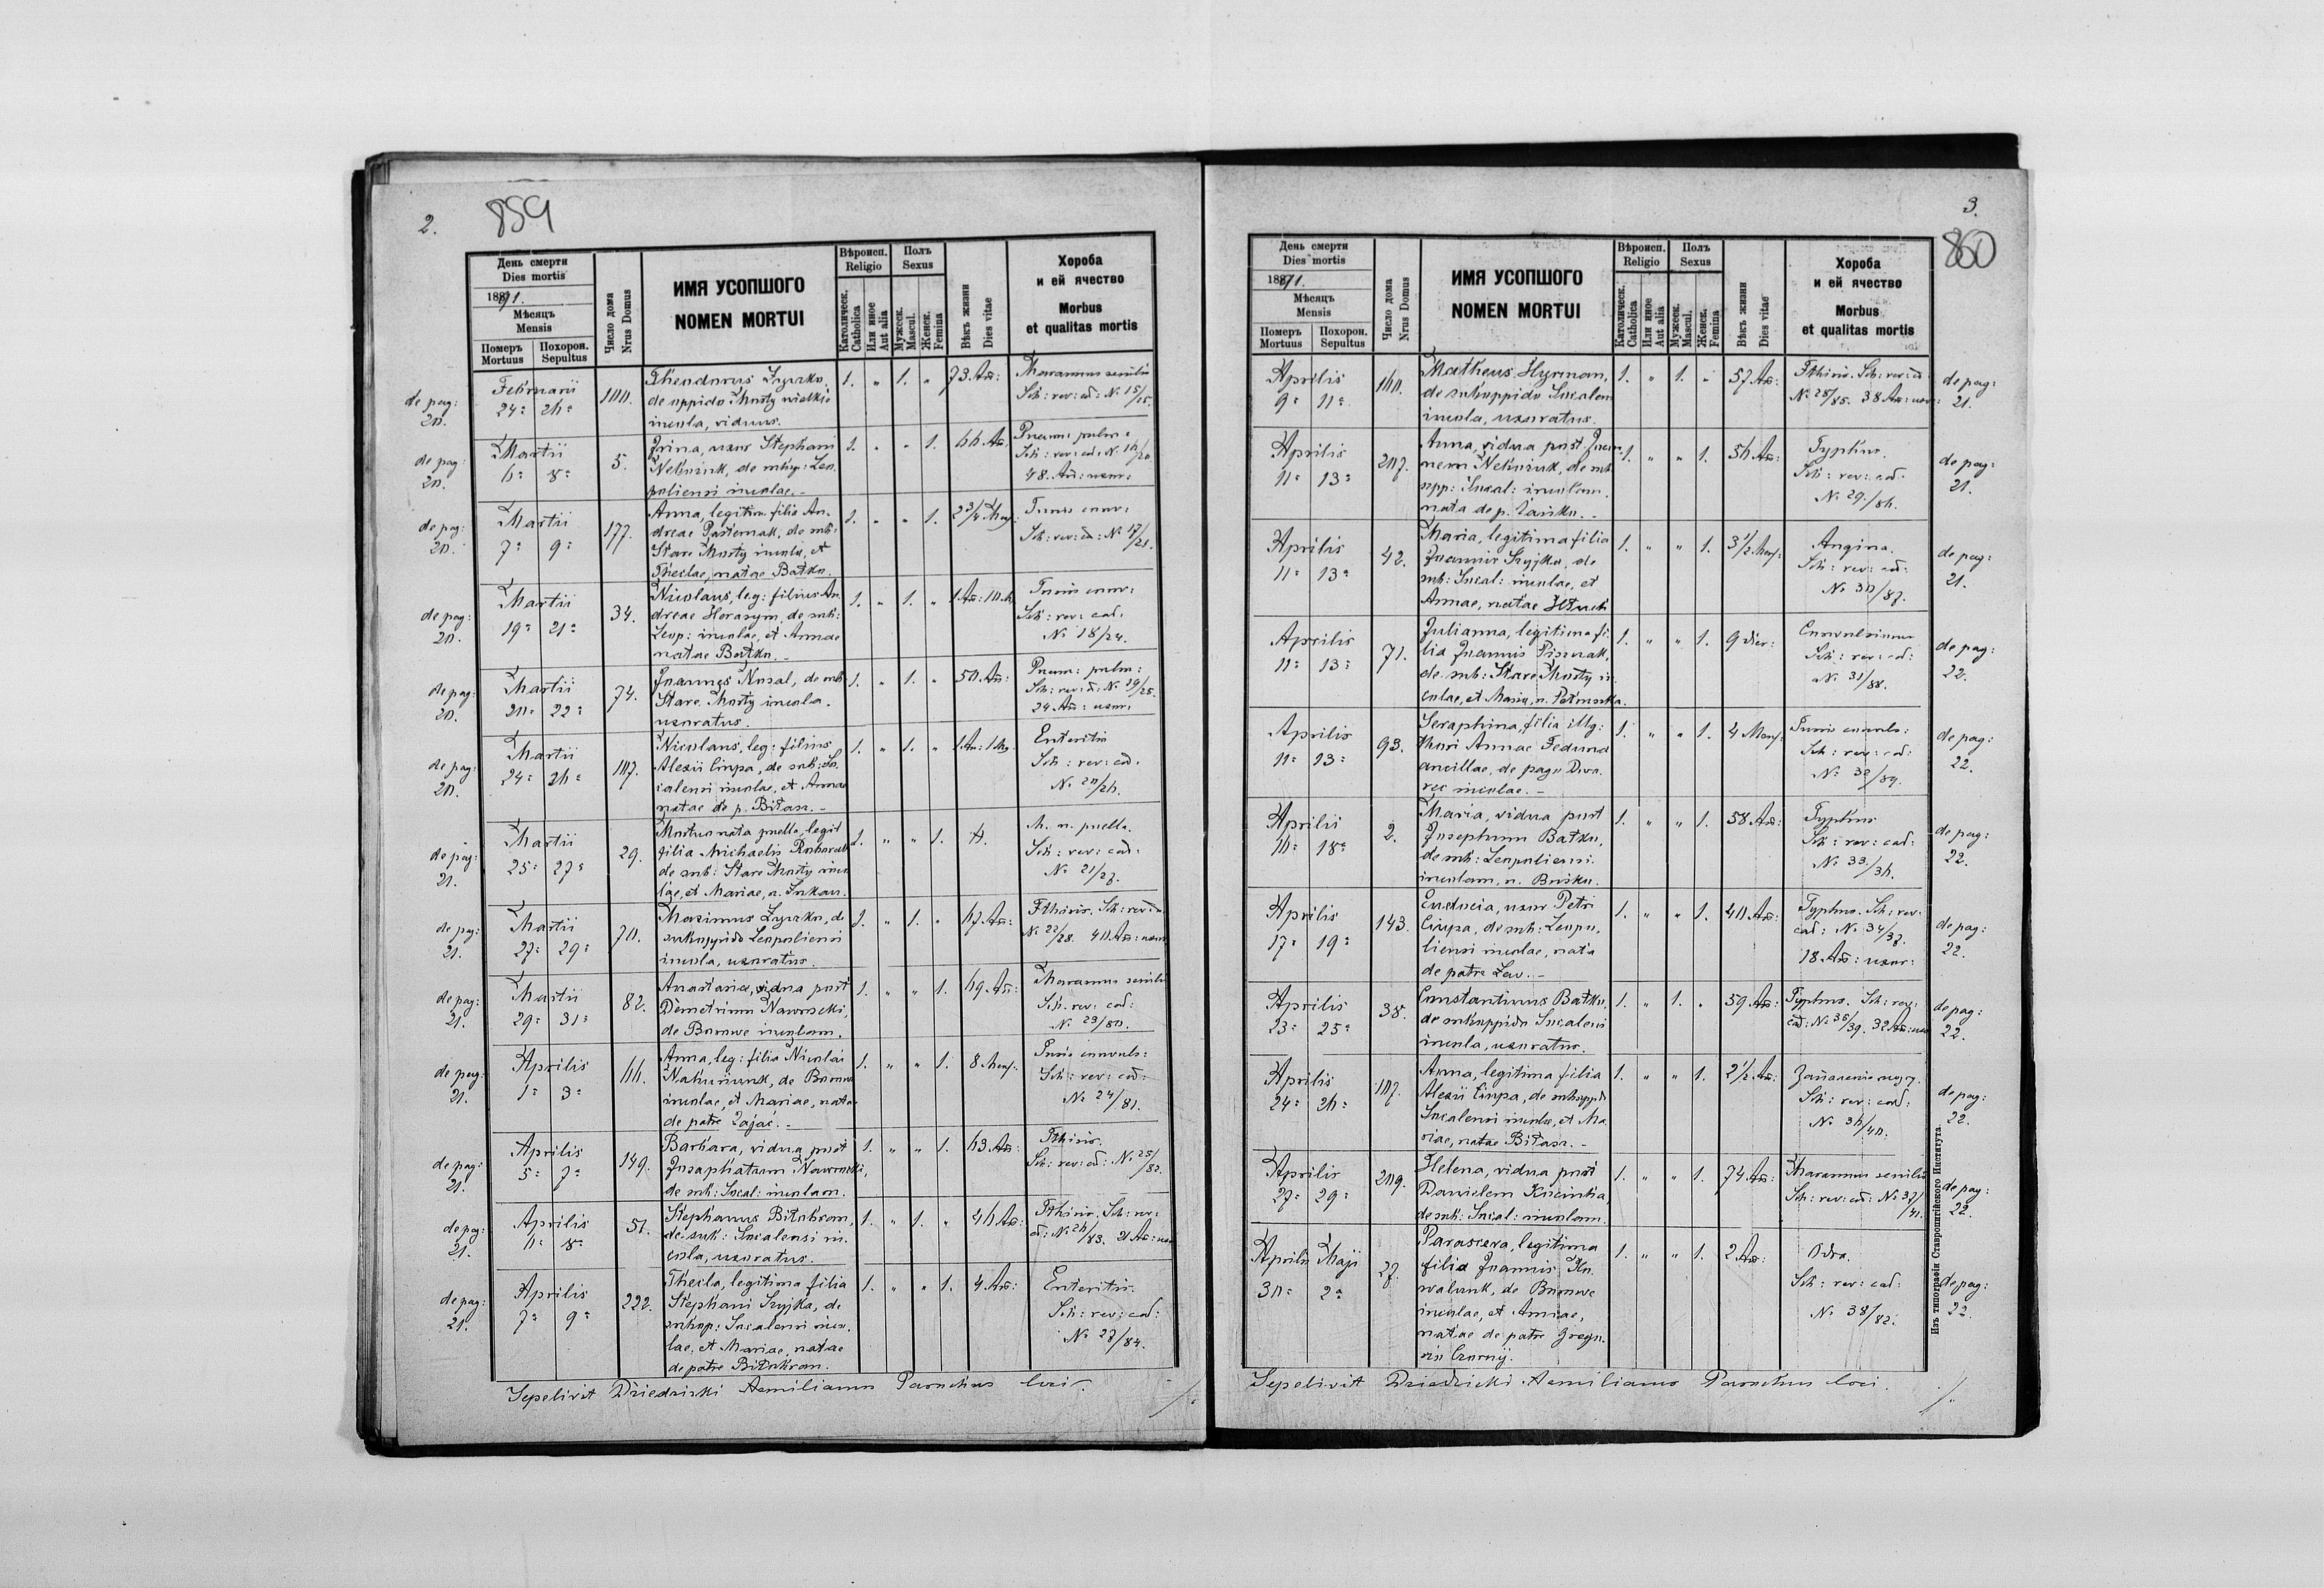 2.
859
День смерти
Dies mortis
1891.
Мѣсяцъ
Mensis
Померъ
Mortuus
Похорон.
Sepultus
Число дома
Nrus Domus
ИМЯ УСОПШОГО
NOMEN MORTUI
Вѣроисп.
Religio
Католическ.
Catholica
Или иное
Aut alia
Полъ
Sexus
Мужеск.
Mascul.
Женск.
Femina
Вѣкъ жизни
Dies vitae
Хороба
и ей ячество
Morbus
et qualitas mortis
de pag: 20.
Februarii
24= 26=
100.
Theodorus
de oppido Mosty wielkie
incola, viduus.
1. " 1. "
73. An:
Marasmus senilis
Sch: rev: cad: No 15/15.
de pag: 20.
Martii
6= 8=
5.
Irina, uxor Stephani
de
poliensi incolae. -
1. " " 1.
66 An:
Pneum: pulm:
48. An: uxor:
de pag: 20.
Martii
7= 9=
177.
Anna, legitim. filia An-
dreae Pasternak, de sub:
Stare Mosty incolae, et
Theclae, natae Batko.
1. " " 1.
2 3/4 Mens:
Tussis conv:
Sch: rev: cad: No 17/21.
de pag: 20.
Martii
19= 21=
34.
Nicolaus, leg: filius An-
dreae Herasym, de sub:
Leop: incolae, et Annae
natae Batko. -
1. " 1. "
1 An: 10 M.
Tussis conv:
Sch: rev: cad:
No 18/24.
de pag: 20.
Martii
20= 22=
74.
Joannes Nosal, de sub
Stare Mosty incola,
uxoratus.
1. " 1. "
50 An:
Pneum: pulm:
Sch: rev: cad: No 19/25.
24 An: uxor:
de pag: 20.
Martii
24= 26=
107.
Nicolaus, leg: filius
Alexii Ciupa, de sub: So-
calensi incolae, et Annae
natae de p. Biłasz. -
1. " 1. "
1 An: 1 M.
Enteritis
Sch: rev: cad:
No 20/26.
de pag: 21.
Martii
25= 27=
29.
Mortuo nata puella, legit
filia Michaelis
de sub: Stare Mosty inco-
lae, et Mariae, n.
1. " " 1.
M. n. puella.
Sch: rev: cad:
No 21/27.
de pag: 21.
Martii
27= 29=
70.
Maximus de
suboppido Leopoliensi
incola, uxoratus.
1. " 1. "
67 An:
Phthisis. Sch: rev: cad
No 22/28. 40 An: uxor
de pag: 21.
Martii
29= 31=
82.
Anastasia, vidua post
Demetrium Naworocki,
de Borowe incolam.
1. " " 1.
69 An:
Marasmus senilis
Sch: rev: cad:
No 23/80.
de pag: 21.
Aprilis
1= 3=
66.
Anna, leg: filia Nicolai
de Borowe
incolae, et Mariae, natae
de patre Zając. -
1. " " 1.
8 Mens:
Tussis convuls:
Sch: rev: cad:
No 24/81.
de pag: 21.
Aprilis
5= 7=
149.
Barbara, vidua post
Josaphatum Naworocki,
de sub: Socal: incolam.
1. " " 1.
63 An:
Phthisis.
Sch: rev: cad: No 25/82.
de pag: 21.
Aprilis
6= 8=
51.
Stephanus Biłokrom,
de sub: Socalensi in-
cola, uxoratus.
1. " 1. "
46 An:
Phthisis. Sch: rev:
cad: No 26/83. 21 An: uxor
de pag: 21.
Aprilis
7= 9=
222.
Thecla, legitima filia
Stephani Szyjka, de
subop: Socalensi inco-
lae, et Mariae, natae
de patre Biłokrom.
1. " " 1.
4. An:
Enteritis.
Sch: rev: cad:
No 27/84.
Sepelivit Dziedzicki Aemilianus Parochus loci.
3.
860
День смерти
Dies mortis
1891.
Мѣсяцъ
Mensis
Померъ
Mortuus
Похорон.
Sepultus
Число дома
Nrus Domus
ИМЯ УСОПШОГО
NOMEN MORTUI
Вѣроисп.
Religio
Католическ.
Catholica
Или иное
Aut alia
Полъ
Sexus
Мужеск.
Mascul.
Женск.
Femina
Вѣкъ жизни
Dies vitae
Хороба
и ей ячество
Morbus
et qualitas mortis
Aprilis
9= 11=
160.
Matheus Hyrman,
de suboppido Socalens
incola, uxoratus.
1. " 1. "
57 An:
Phthisis. Sch: rev: cad
No 28/85. 38 An: uxor:
de pag: 21.
Aprilis
11= 13=
207.
Anna, vidua post Joan-
nem de sub
opp: Socal: incolam.
nata de p. -
1. " " 1.
56 An:
Typhus.
Sch: rev: cad:
No 29/86.
de pag: 21.
Aprilis
11= 13=
42.
Maria, legitima filia
Joannis Szyjka, de
sub: Socal: incolae, et
Annae, natae
1. " " 1.
3 1/2 Mens:
Angina.
Sch: rev: cad:
No 30/87.
de pag: 21.
Aprilis
11= 13=
71.
Julianna, legitima fi-
lia Joannis
de sub: Stare Mosty in-
colae, et Mariae, n.
1. " " 1.
9 dier:
Convulsiones
Sch: rev: cad:
No 31/88.
de pag: 22.
Aprilis
11= 13=
93.
Seraphina, filia illeg:
thori Annae Feduna
ancillae, de pago Dwo-
rec incolae. -
1. " " 1.
4 Mens:
Tussis convuls:
Sch: rev: cad:
No 32/89.
de pag: 22.
Aprilis
16= 18=
2.
Maria, vidua post
Josephum Batko,
de sub: Leopoliensi
incolam, n. Busko.
1. " " 1.
58 An:
Typhus
Sch: rev: cad:
No 33/36.
de pag: 22.
Aprilis
17= 19=
143.
Eudocia, uxor Petri
Ciupa, de sub: Leopo-
liensi incolae, nata
de patre Lew. -
1. " " 1.
40 An:
Typhus. Sch: rev:
cad: No 34/37.
18 An: uxor:
de pag: 22.
Aprilis
23= 25=
38.
Constantinus Batko,
de suboppido Socalensi
incola, uxoratus.
1. " 1. "
59 An:
Typhus. Sch: rev:
cad: No 35/39. 32 An: uxor
de pag: 22.
Aprilis
24= 26=
107.
Anna, legitima filia
Alexii Ciupa, de suboppido
Socalensi incolae, et Ma-
riae, natae Biłasz. -
1. " " 1.
2 1/2 An:
Sch: rev: cad:
No 36/40.
de pag: 22.
Aprilis
27= 29=
209.
Helena, vidua post
Danielem
de sub: Socal: incolam.
1. " " 1.
74 An:
Marasmus senilis
Sch: rev: cad: No 37/41.
de pag: 22.
Aprilis Maji
30= 2=
27.
Parasceva, legitima
filia Joannis Ko-
waluk, de Borowe
incolae, et Annae,
natae de patre Grego-
rio Czornij.
1. " " 1.
2 An:
Odra.
Sch: rev: cad:
No 38/82.
de pag: 22.
Sepelivit Dziedzicki Aemilianus Parochus loci.
Изъ типографіи Ставропигійского Института